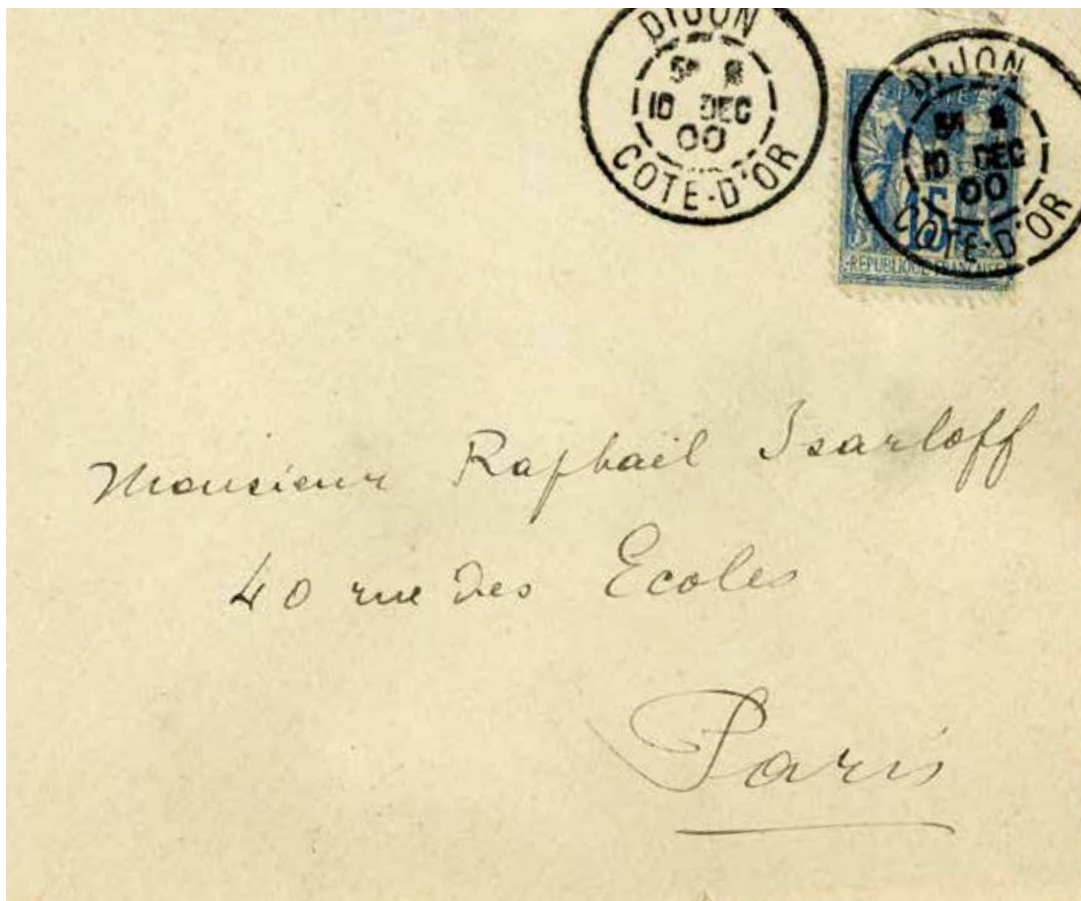 DIJON
10 DEC
00
COTE-D'OR
DIJON
10 DEC
00
COTE-D'OR
15
REPUBLIQUE FRANCAISE
Monsieur Raphaël Isarloff
40 rue des Ecoles
Paris